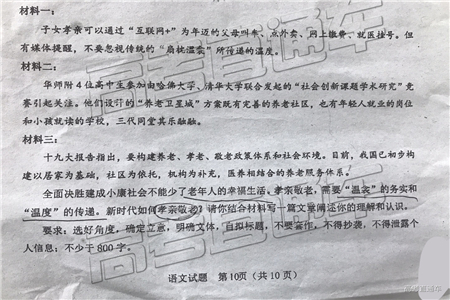 材料一：
子女孝亲可以通过“互联网+”为年迈的父母叫车、点外卖、网上缴费、就医挂号。但
有媒体提醒，不要忽视传统的“扇枕温衾”所传递的温度。
材料二：
华师附4位高中生参加由哈佛大学、清华大学联合发起的“社会创新课题学术研究”竞
赛引起关注。他们设计的“养老卫星城”方案既有完善的养老社区，也有年轻人就业的岗位
和小孩就读的学校，三代同堂其乐融融。
材料三：
十九大报告指出，要构建养老、孝老、敬老政策体系和社会环境。目前，我国已初步构
建以居家为基础、社区为依托，机构为补充，医养相结合的养老服务体系。
全面决胜建成小康社会不能少了老年人的幸福生活。孝亲敬老，需要“温衾”的务实和
“温度”的传递。新时代如何孝亲敬老？请你结合材料写一篇文章阐述你的理解和认识。
要求：选好角度，确定立意，明确文体，自拟标题，不要套作，不得抄袭，不得泄露个
人信息；不少于800字。
语文试题 第10页（共10页）
高考直通车
高考直通车
高考直通车